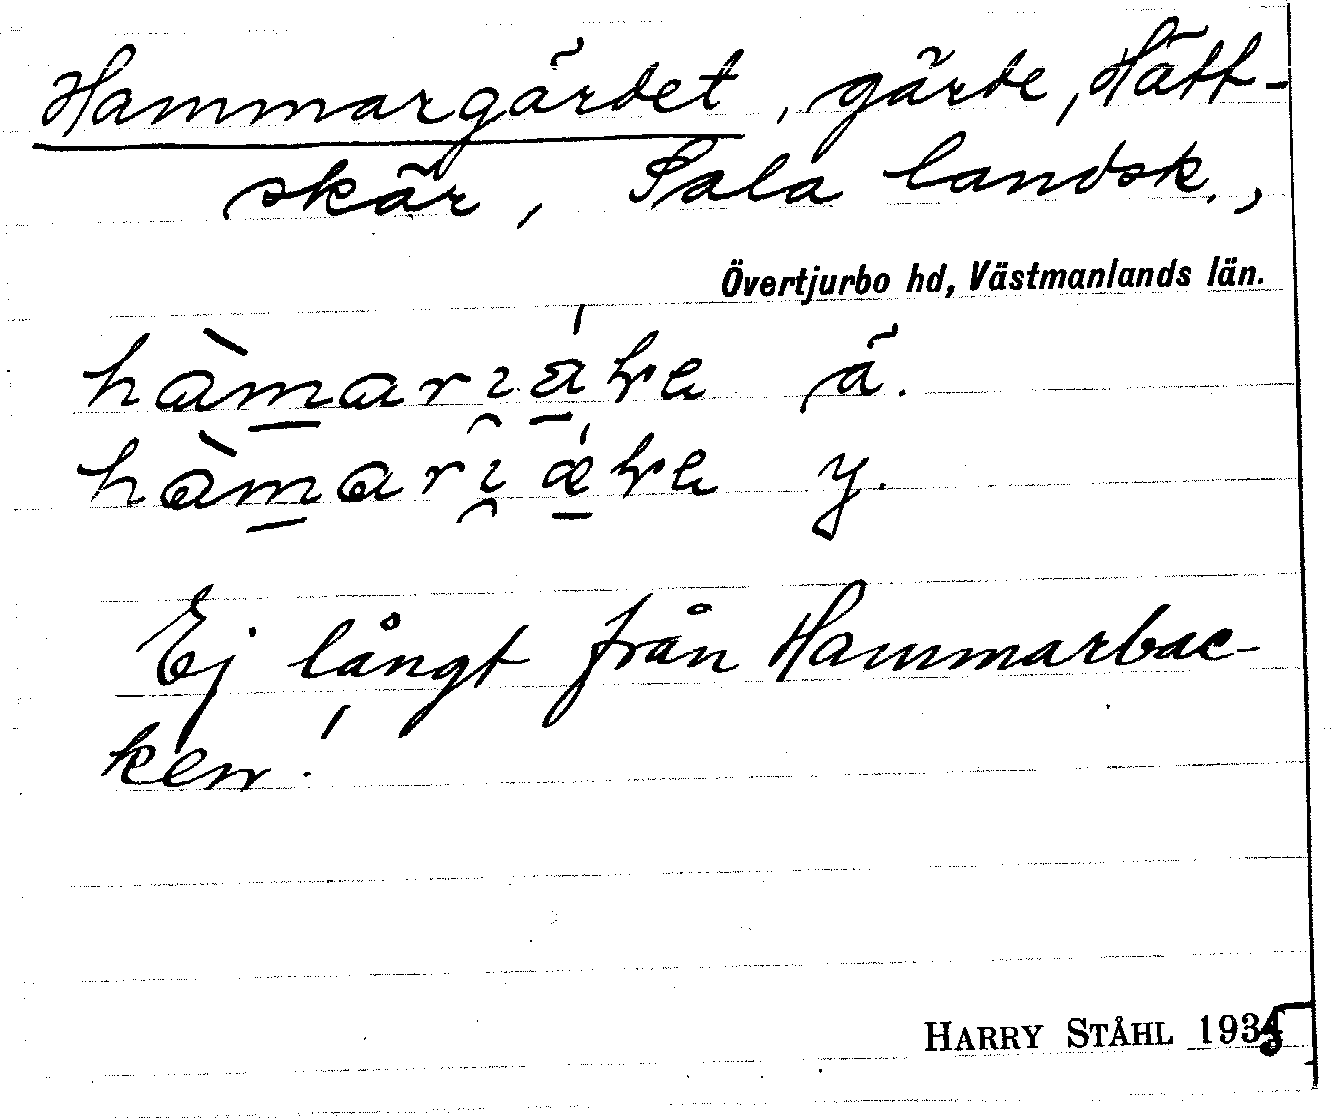 Hammargärdet, gärde, Hätt-
skär, Sala landsk.,
Övertjurbo hd, Västmanlands län.
ä.
y.
Ej långt från Hammarbac-
ken!
HARRY STÅHL 1935